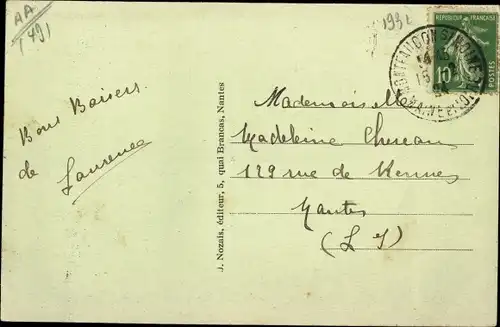 AA
(49)
1932
REPUBLIQUE FRANÇAISE
10
POSTES
Bons Baisers
de
Laurence
J. Nozais, éditeur, 5, quai Brancas, Nantes
Mademoiselle
Madeleine Chereau
129 rue de Rennes
Nantes
(L I)